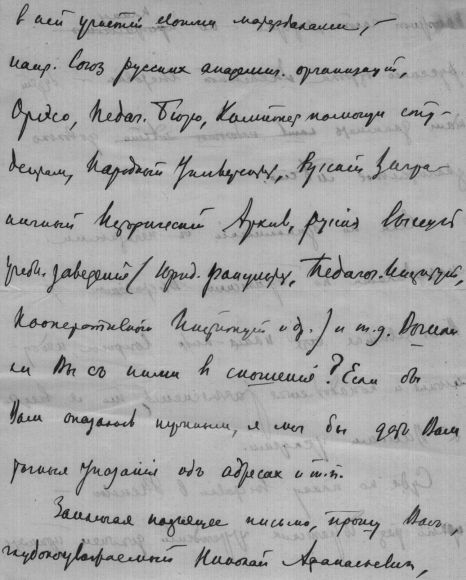 в ней участей своими матерьалами, –
напр. Союз русских академич. организаций,
Орэсо, Педаг. Бюро, Комитет помощи сту-
дентам, Народный Университет, Русский Загра-
ничный Исторический Архив, русския высшия
учебн. заведений (Юрид. факультет, Педагог. Институт,
Кооперативный Институт и др.) и т.д. Вошли
ли Вы съ ними в сношения? Если бы
Вам оказалось нужным, я мог бы дать Вам
точныя указания об адресах и т.п.
Заканчивая настоящее письмо, прошу Вас,
глубокоуважаемый Николай Афанасьевич,